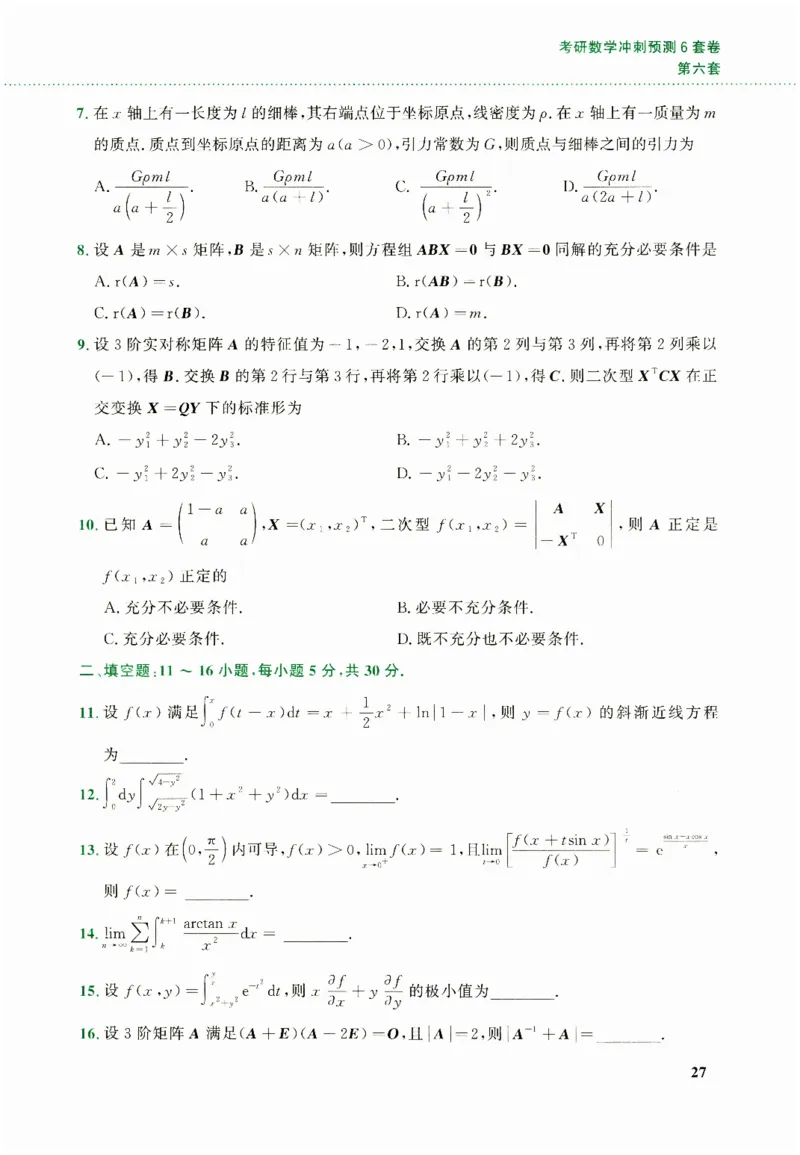 考研数学冲刺预测6套卷
第六套
7. 在 x 轴上有一长度为 l 的细棒,其右端点位于坐标原点,线密度为 ρ. 在 x 轴上有一质量为 m
的质点. 质点到坐标原点的距离为 a(a > 0),引力常数为 G,则质点与细棒之间的引力为
A. $\frac{Gρml}{a\left(a+\frac{l}{2}\right)}$. B. $\frac{Gρml}{a(a+l)}$. C. $\frac{Gρml}{\left(a+\frac{l}{2}\right)^2}$. D. $\frac{Gρml}{a(2a+l)}$.
8. 设 A 是 m × s 矩阵,B 是 s × n 矩阵,则方程组 ABX = 0 与 BX = 0 同解的充分必要条件是
A. r(A) = s. B. r(AB) = r(B).
C. r(A) = r(B). D. r(A) = m.
9. 设 3 阶实对称矩阵 A 的特征值为 −1, −2, 1,交换 A 的第 2 列与第 3 列,再将第 2 列乘以
(−1),得 B. 交换 B 的第 2 行与第 3 行,再将第 2 行乘以(−1),得 C. 则二次型 $X^{\mathrm{T}}CX$ 在正
交变换 X = QY 下的标准形为
A. $-y_1^2+y_2^2-2y_3^2$. B. $-y_1^2+y_2^2+2y_3^2$.
C. $-y_1^2+2y_2^2-y_3^2$. D. $-y_1^2-2y_2^2-y_3^2$.
10. 已知 $A=\begin{pmatrix}1-a & a\\ a & a\end{pmatrix}$, $X=(x_1,x_2)^{\mathrm{T}}$,二次型 $f(x_1,x_2)=\begin{vmatrix}A & X\\ -X^{\mathrm{T}} & 0\end{vmatrix}$,则 A 正定是
$f(x_1,x_2)$ 正定的
A. 充分不必要条件. B. 必要不充分条件.
C. 充分必要条件. D. 既不充分也不必要条件.
二、填空题:11 ~ 16 小题,每小题 5 分,共 30 分.
11. 设 f(x) 满足 $\int_0^x f(t-x)dt=x+\frac{1}{2}x^2+\ln|1-x|$,则 y = f(x) 的斜渐近线方程
为______.
12. $\int_0^2 dy\int_{\sqrt{2y-y^2}}^{\sqrt{4-y^2}}(1+x^2+y^2)dx=$______.
13. 设 f(x) 在 $\left(0,\frac{π}{2}\right)$ 内可导,f(x) > 0, $\lim_{x→0^+}f(x)=1$,且 $\lim_{t→0}\left[\frac{f(x+t\sin x)}{f(x)}\right]^{\frac{1}{t}}=e^{\frac{\sin x-x\cos x}{x}}$,
则 f(x) = ______.
14. $\lim_{n→∞}\sum_{k=1}^{n}\int_k^{k+1}\frac{\arctan x}{x^2}dx=$______.
15. 设 $f(x,y)=\int_{x^2+y^2}^{\frac{y}{x}}e^{-t^2}dt$,则 $x\frac{∂f}{∂x}+y\frac{∂f}{∂y}$ 的极小值为______.
16. 设 3 阶矩阵 A 满足(A + E)(A − 2E) = O,且 |A| = 2,则 $|A^{-1}+A|=$______.
27